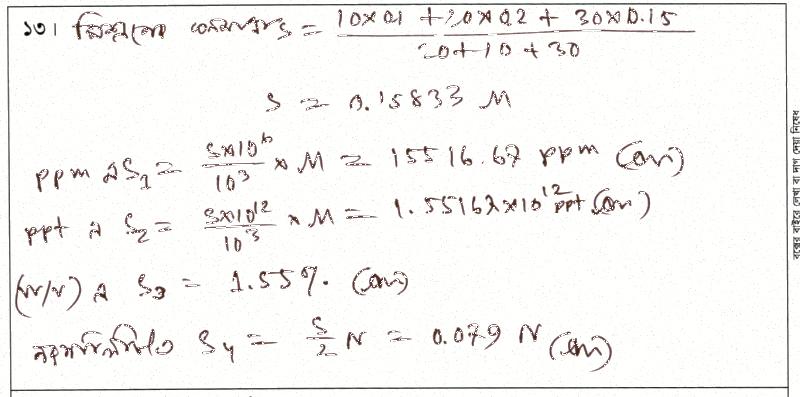 ১৩। মিশ্রণের ঘনমাত্রা S = (10×0.1 + 20×0.2 + 30×0.15) / (20+10+30)
S = 0.15833 M
ppm এ S₁ = (S×10⁶ / 10³) × M = 15516.67 ppm (Ans)
ppt এ S₂ = (S×10¹² / 10³) × M = 1.55167×10¹² ppt (Ans)
(W/V) এ S₃ = 1.55% (Ans)
নরমালিটিতে S₄ = S/2 N = 0.079 N (Ans)
বক্সের বাইরে লেখা বা দাগ দেয়া নিষেধ